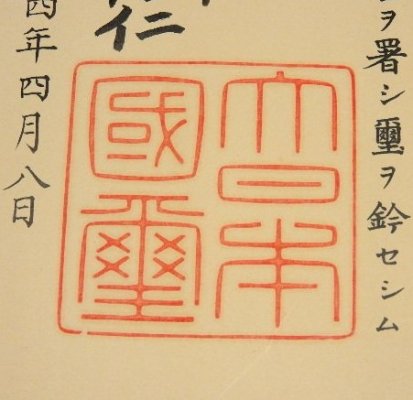 ヲ署シ璽ヲ鈐セシム
仁
大日本
國璽
四年四月八日